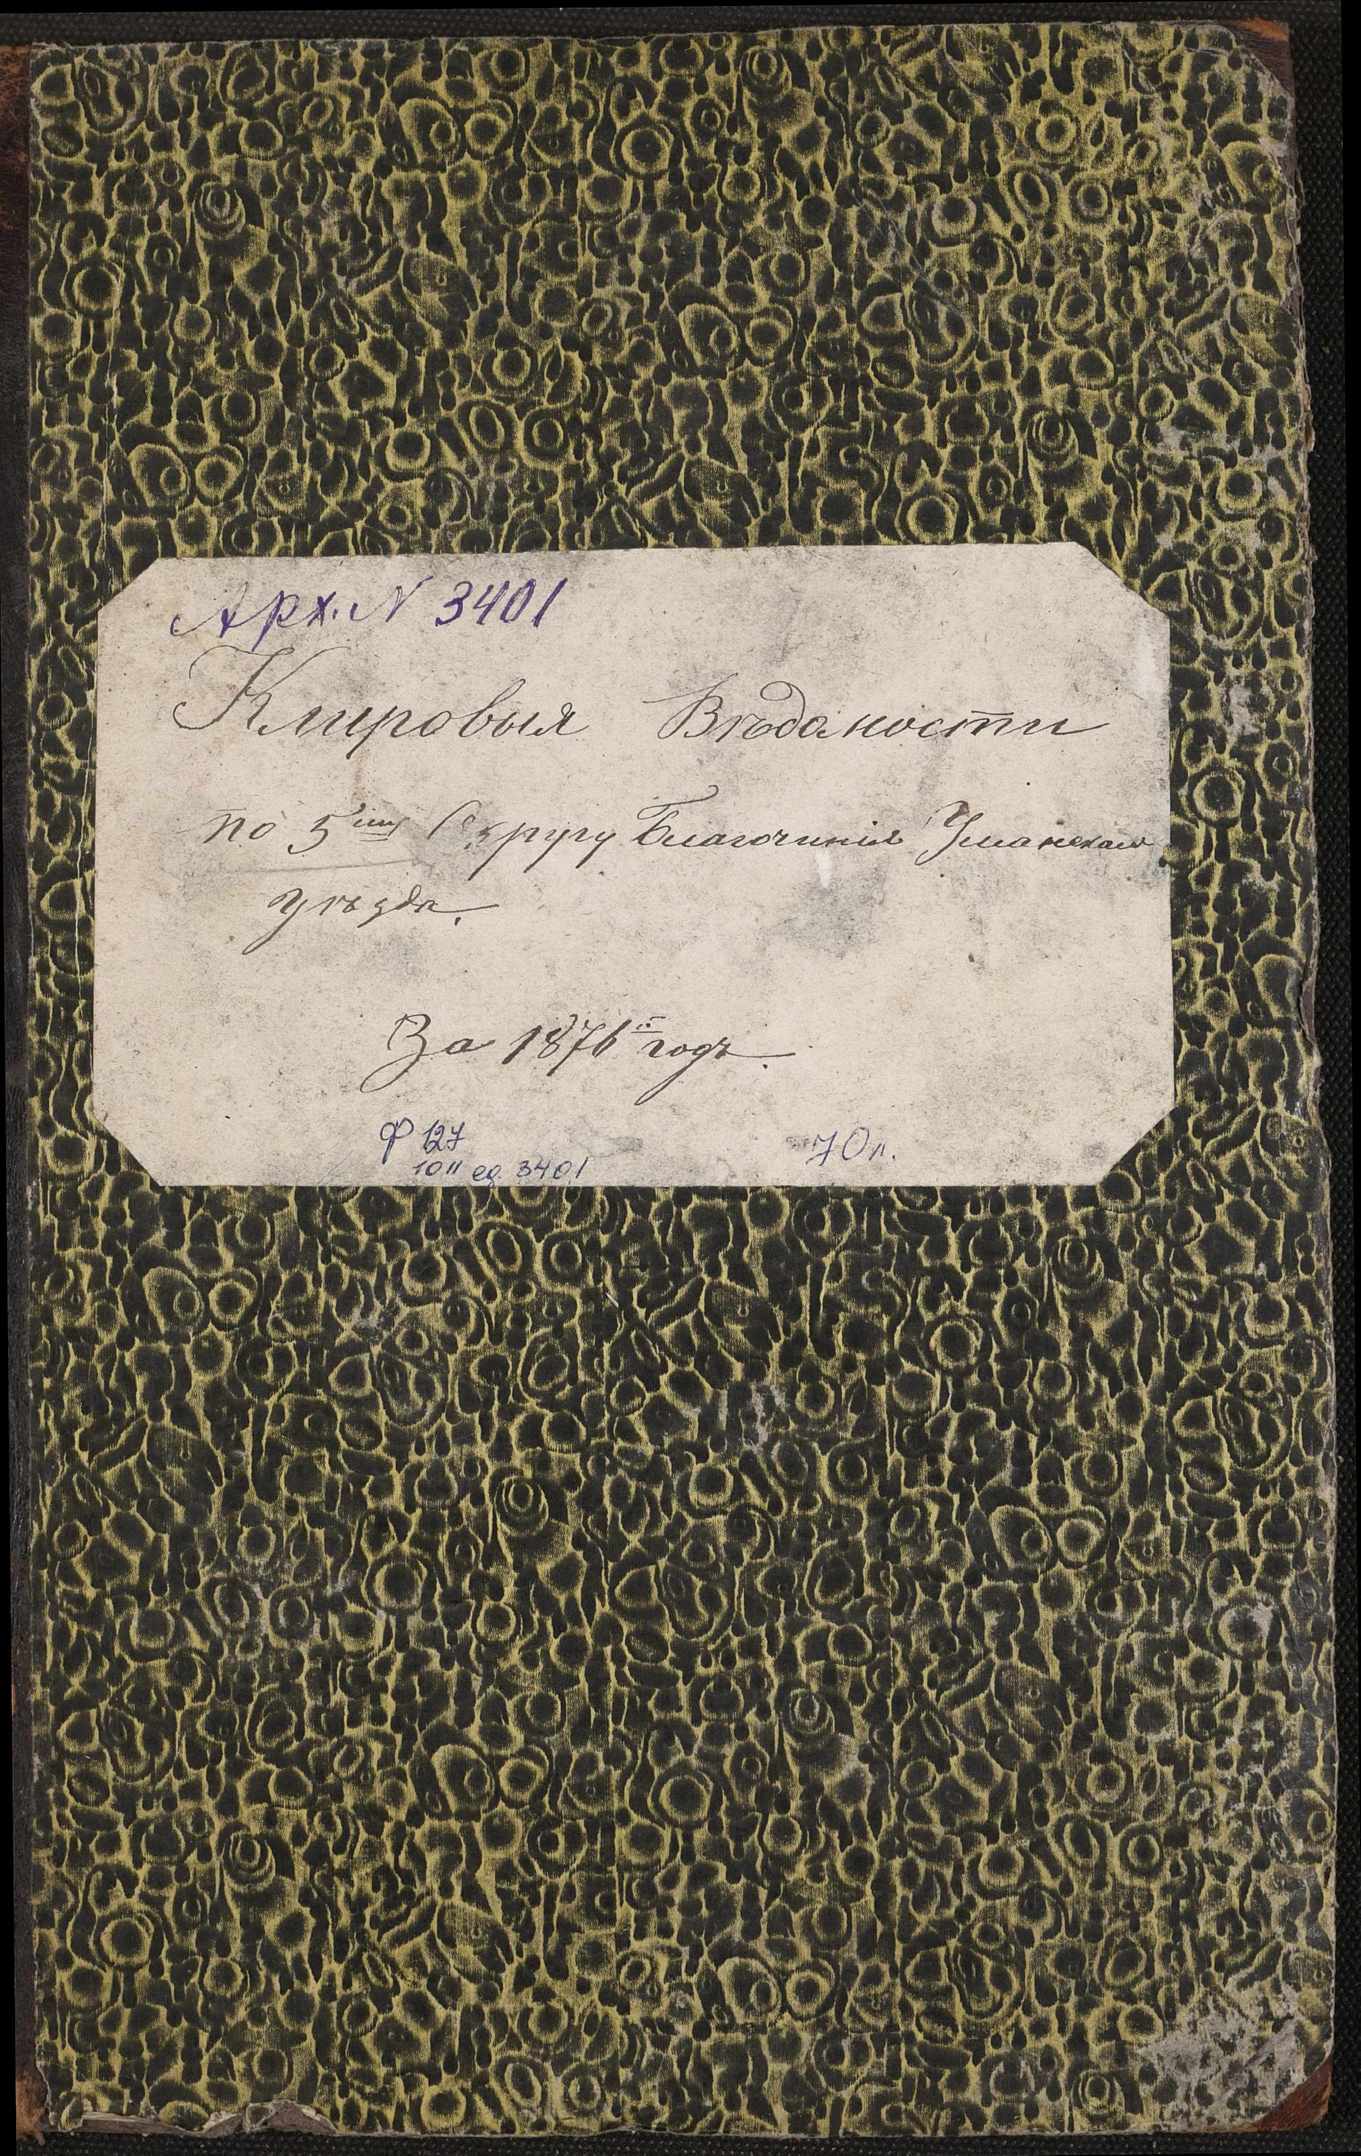 Арх. N 3401
Клировыя Вѣдомости
по 5му Округу Благочинія Уманскаго
уѣзда.
За 1876й годъ.
Ф 127
70 л.
10 11 ед. 3401